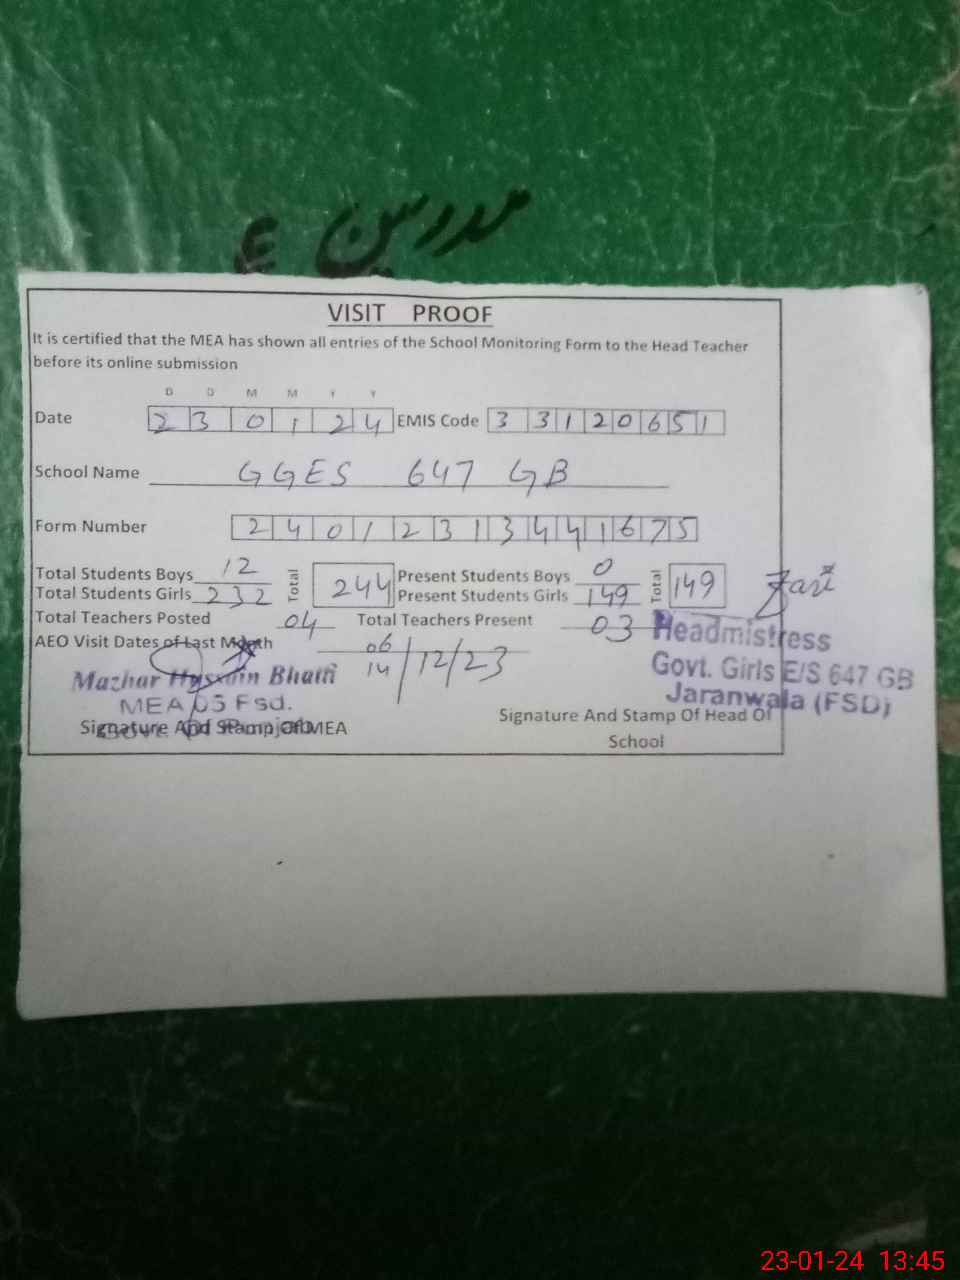 مدرسین
VISIT PROOF
It is certified that the MEA has shown all entries of the School Monitoring Form to the Head Teacher
before its online submission
D D M M Y Y
Date 2 3 0 1 2 4 EMIS Code 3 3 1 2 0 6 5 1
School Name GGES 647 GB
Form Number 2 4 0 1 2 3 1 3 4 4 1 6 7 5
Total Students Boys 12 Total 244 Present Students Boys 0 Total 149
Total Students Girls 232 Present Students Girls 149
Total Teachers Posted 04 Total Teachers Present 03
AEO Visit Dates of Last Month 06
14/12/23
Headmistress
Govt. Girls E/S 647 GB
Jaranwala (FSD)
Mazhar Hussain Bhatti
MEA 05 Fsd.
Govt Of Punjab
Signature And Stamp Of MEA
Signature And Stamp Of Head Of
School
23-01-24 13:45